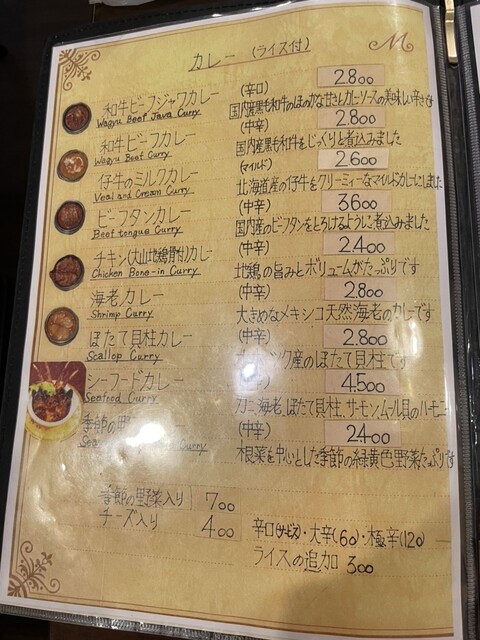 カレー (ライス付)
M
和牛ビーフジャワカレー (辛口) 2.800
Wagyu Beef Java Curry 国内産黒毛和牛のほのかな甘さとカレーソースの美味しい辛さです
和牛ビーフカレー (中辛) 2.800
Wagyu Beef Curry 国内産黒毛和牛をじっくりと煮込みました
仔牛のミルクカレー (マイルド) 2.600
Veal and Cream Curry 北海道産の仔牛をクリーミィーなマイルドカレーにしました
ビーフタンカレー (中辛) 3.600
Beef tongue Curry 国内産のビーフタンをとろけるように煮込みました
チキン(大山地鶏骨付)カレー (中辛) 2.400
Chicken Bone-in Curry 地鶏の旨みとボリュームがたっぷりです
海老カレー (中辛) 2.800
Shrimp Curry 大きめなメキシコ天然海老のカレーです
ほたて貝柱カレー (中辛) 2.800
Scallop Curry ツク産のほたて貝柱です
シーフードカレー 4.500
Seafood Curry カニ、海老、ほたて貝柱、サーモン、ムール貝のハーモニ
季節の野 (中辛) 2.400
Curry 根菜を中心とした季節の緑黄色野菜たっぷりです
季節の野菜入り 700
チーズ入り 400
辛口(サービス)・大辛(60)・極辛(120)
ライスの追加 300